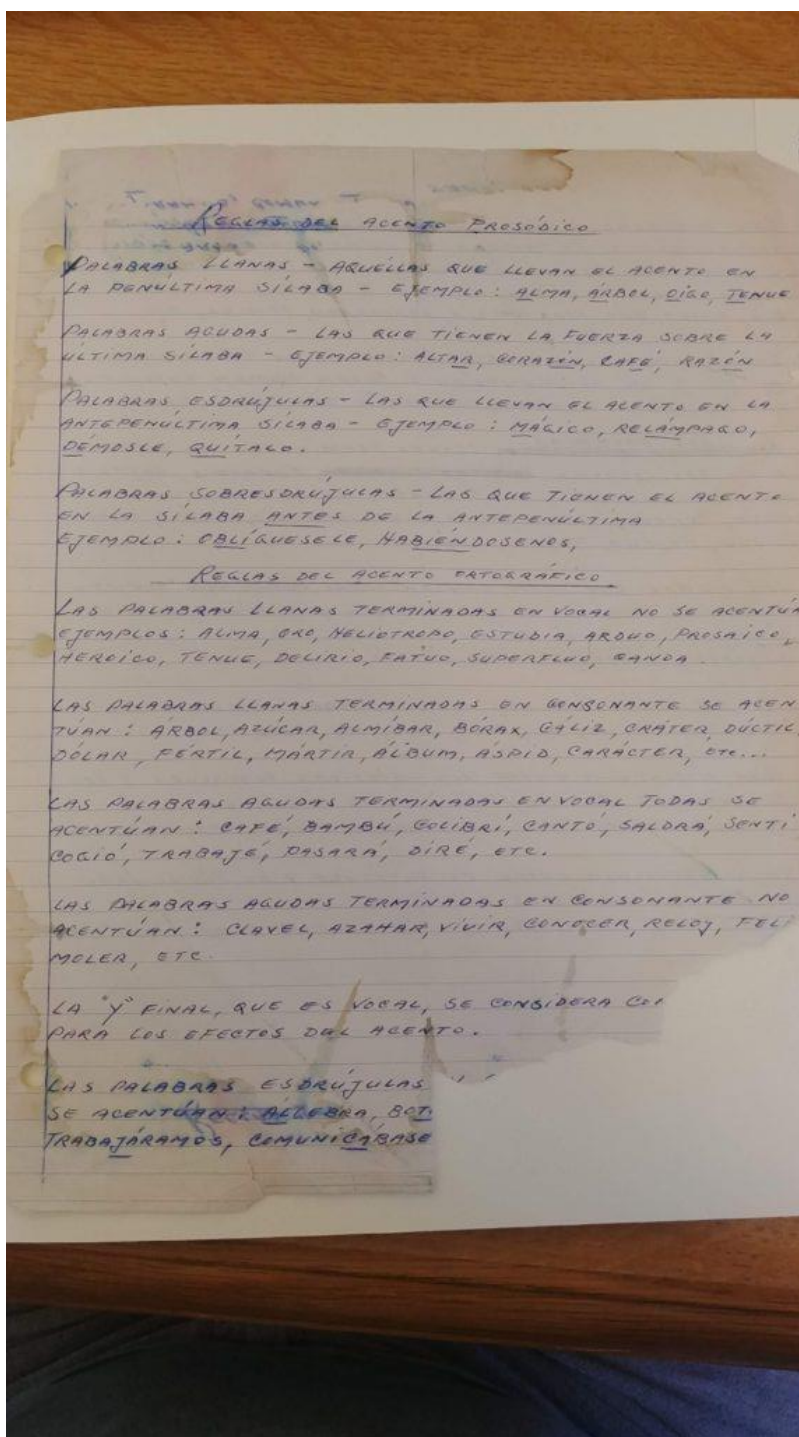 REGLAS DEL ACENTO PROSÓDICO
PALABRAS LLANAS - AQUÉLLAS QUE LLEVAN EL ACENTO EN
LA PENÚLTIMA SÍLABA - EJEMPLO: ALMA, ÁRBOL, OIGO, TENUE
PALABRAS AGUDAS - LAS QUE TIENEN LA FUERZA SOBRE LA
ULTIMA SÍLABA - EJEMPLO: ALTAR, CORAZÓN, CAFÉ, RAZÓN
PALABRAS ESDRÚJULAS - LAS QUE LLEVAN EL ACENTO EN LA
ANTEPENÚLTIMA SÍLABA - EJEMPLO: MÁGICO, RELÁMPAGO,
DÉMOSLE, QUÍTALO.
PALABRAS SOBRESDRÚJULAS - LAS QUE TIENEN EL ACENTO
EN LA SÍLABA ANTES DE LA ANTEPENÚLTIMA
EJEMPLO: OBLÍGUESELE, HABIÉNDOSENOS,
REGLAS DEL ACENTO
LAS PALABRAS LLANAS TERMINADAS EN VOCAL NO SE ACENTÚA
EJEMPLOS: ALMA, ORO, HELIOTROPO, ESTUDIA, ARDUO, PROSAICO,
HEROICO, TENUE, DELIRIO, FATUO, SUPERFLUO,
LAS PALABRAS LLANAS TERMINADAS EN CONSONANTE SE ACEN
TÚAN: ÁRBOL, AZÚCAR, ALMÍBAR, BÓRAX, CÁLIZ, CRÁTER, DÚCTIL,
DÓLAR, FÉRTIL, MÁRTIR, ÁLBUM, ÁSPID, CARÁCTER, ETC...
LAS PALABRAS AGUDAS TERMINADAS EN VOCAL TODAS SE
ACENTÚAN: CAFÉ, BAMBÚ, COLIBRÍ, CANTÓ, SALDRÁ, SENTÍ
COGIÓ, TRABAJÉ, PASARÁ, DIRÉ, ETC.
LAS PALABRAS AGUDAS TERMINADAS EN CONSONANTE NO
ACENTÚAN: CLAVEL, AZAHAR, VIVIR, CONOCER, RELOJ, FELI
MOLER, ETC.
LA "Y" FINAL, QUE ES VOCAL, SE CONSIDERA CO
PARA LOS EFECTOS DEL ACENTO.
LAS PALABRAS ESDRÚJULAS
SE ACENTÚAN: ÁLGEBRA, BOT
TRABAJÁRAMOS, COMUNICÁBASE